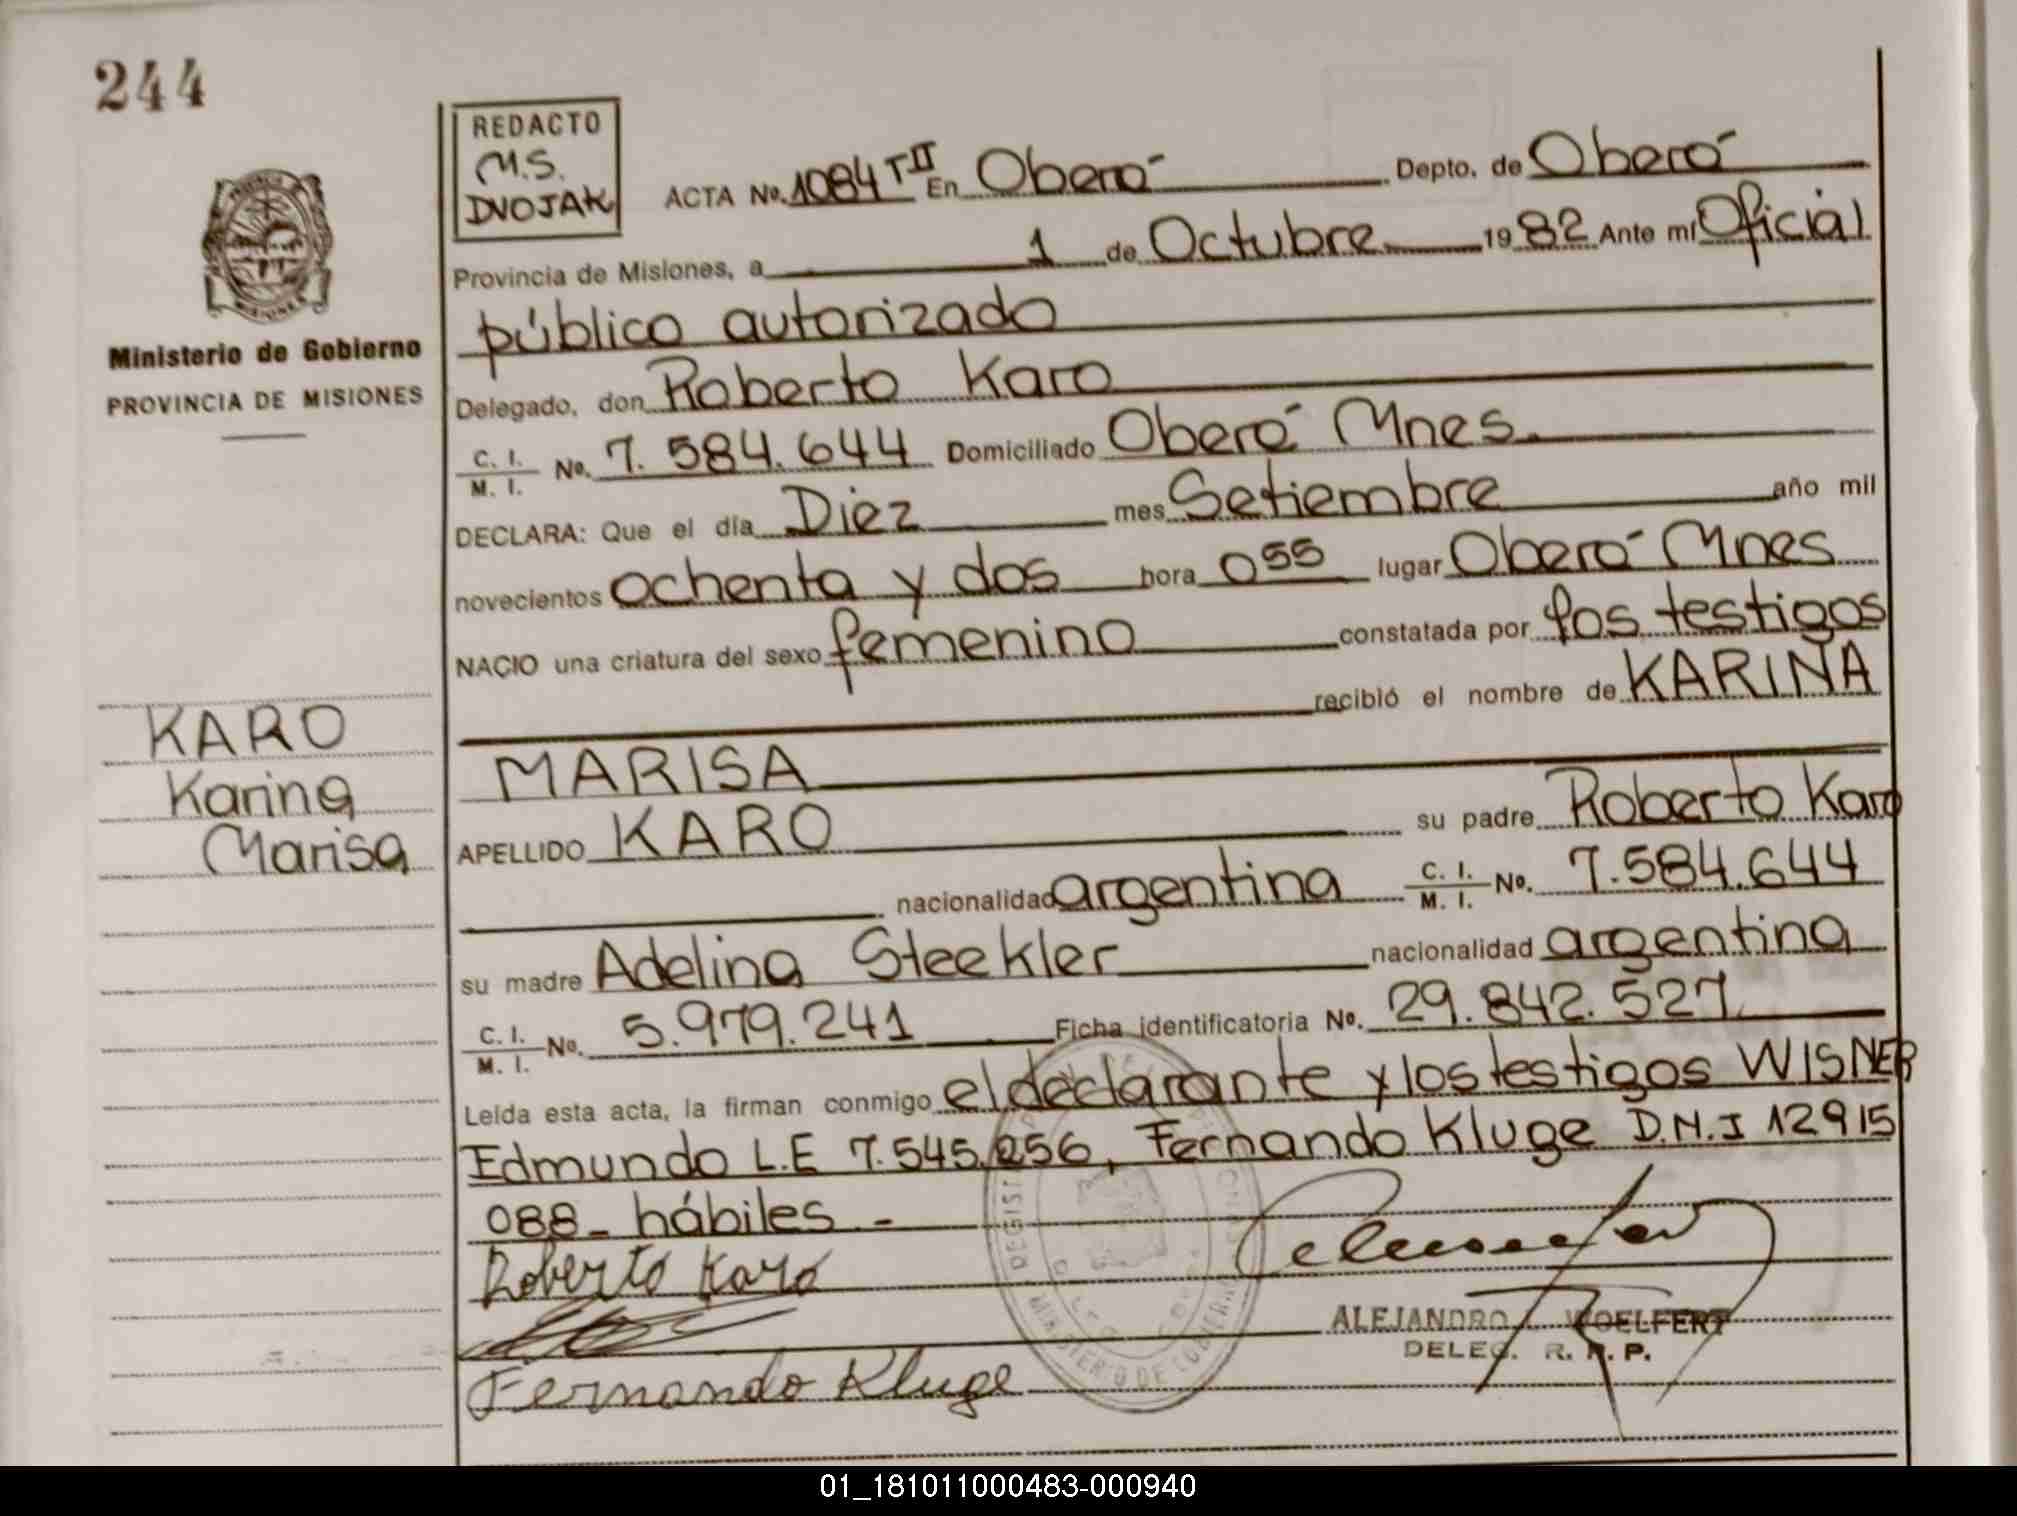 244
REDACTO
M.S.
DVOJAK
ACTA No. 1084 TII En Oberá Depto. de Oberá
Provincia de Misiones, a 1 de Octubre 1982 Ante mí Oficial
público autorizado
Delegado, don Roberto Karo
C. I. / M. I. No. 7.584.644 Domiciliado Oberá Mnes.
DECLARA: Que el día Diez mes Setiembre año mil
novecientos ochenta y dos hora 0 55 lugar Oberá Mnes
NACIO una criatura del sexo femenino constatada por los testigos
recibió el nombre de KARINA
MARISA
APELLIDO KARO su padre Roberto Karo
nacionalidad argentina C. I. / M. I. No. 7.584.644
su madre Adelina Steekler nacionalidad argentina
C. I. / M. I. No. 5.979.241 Ficha identificatoria No. 29.842.527
Leída esta acta, la firman conmigo el declarante y los testigos WISNER
Edmundo L.E 7.545.256, Fernando Kluge D.N.I 12915
088_ hábiles -
Roberto Karo
Fernando Kluge
ALEJANDRO WOELFERT
DELEG. R. P. P.
MINISTERIO DE GOBIERNO
Ministerio de Gobierno
PROVINCIA DE MISIONES
KARO
Karina
Marisa
01_181011000483-000940